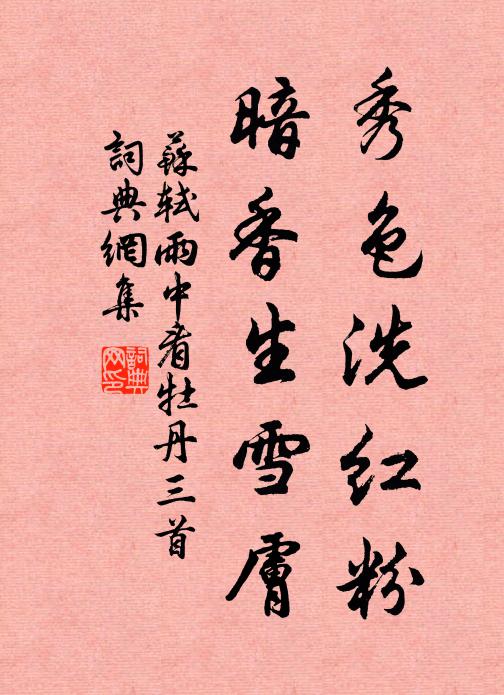 秀色洗红粉
暗香生雪膚
蘇軾雨中看牡丹三首
詞典網集
詞典網印